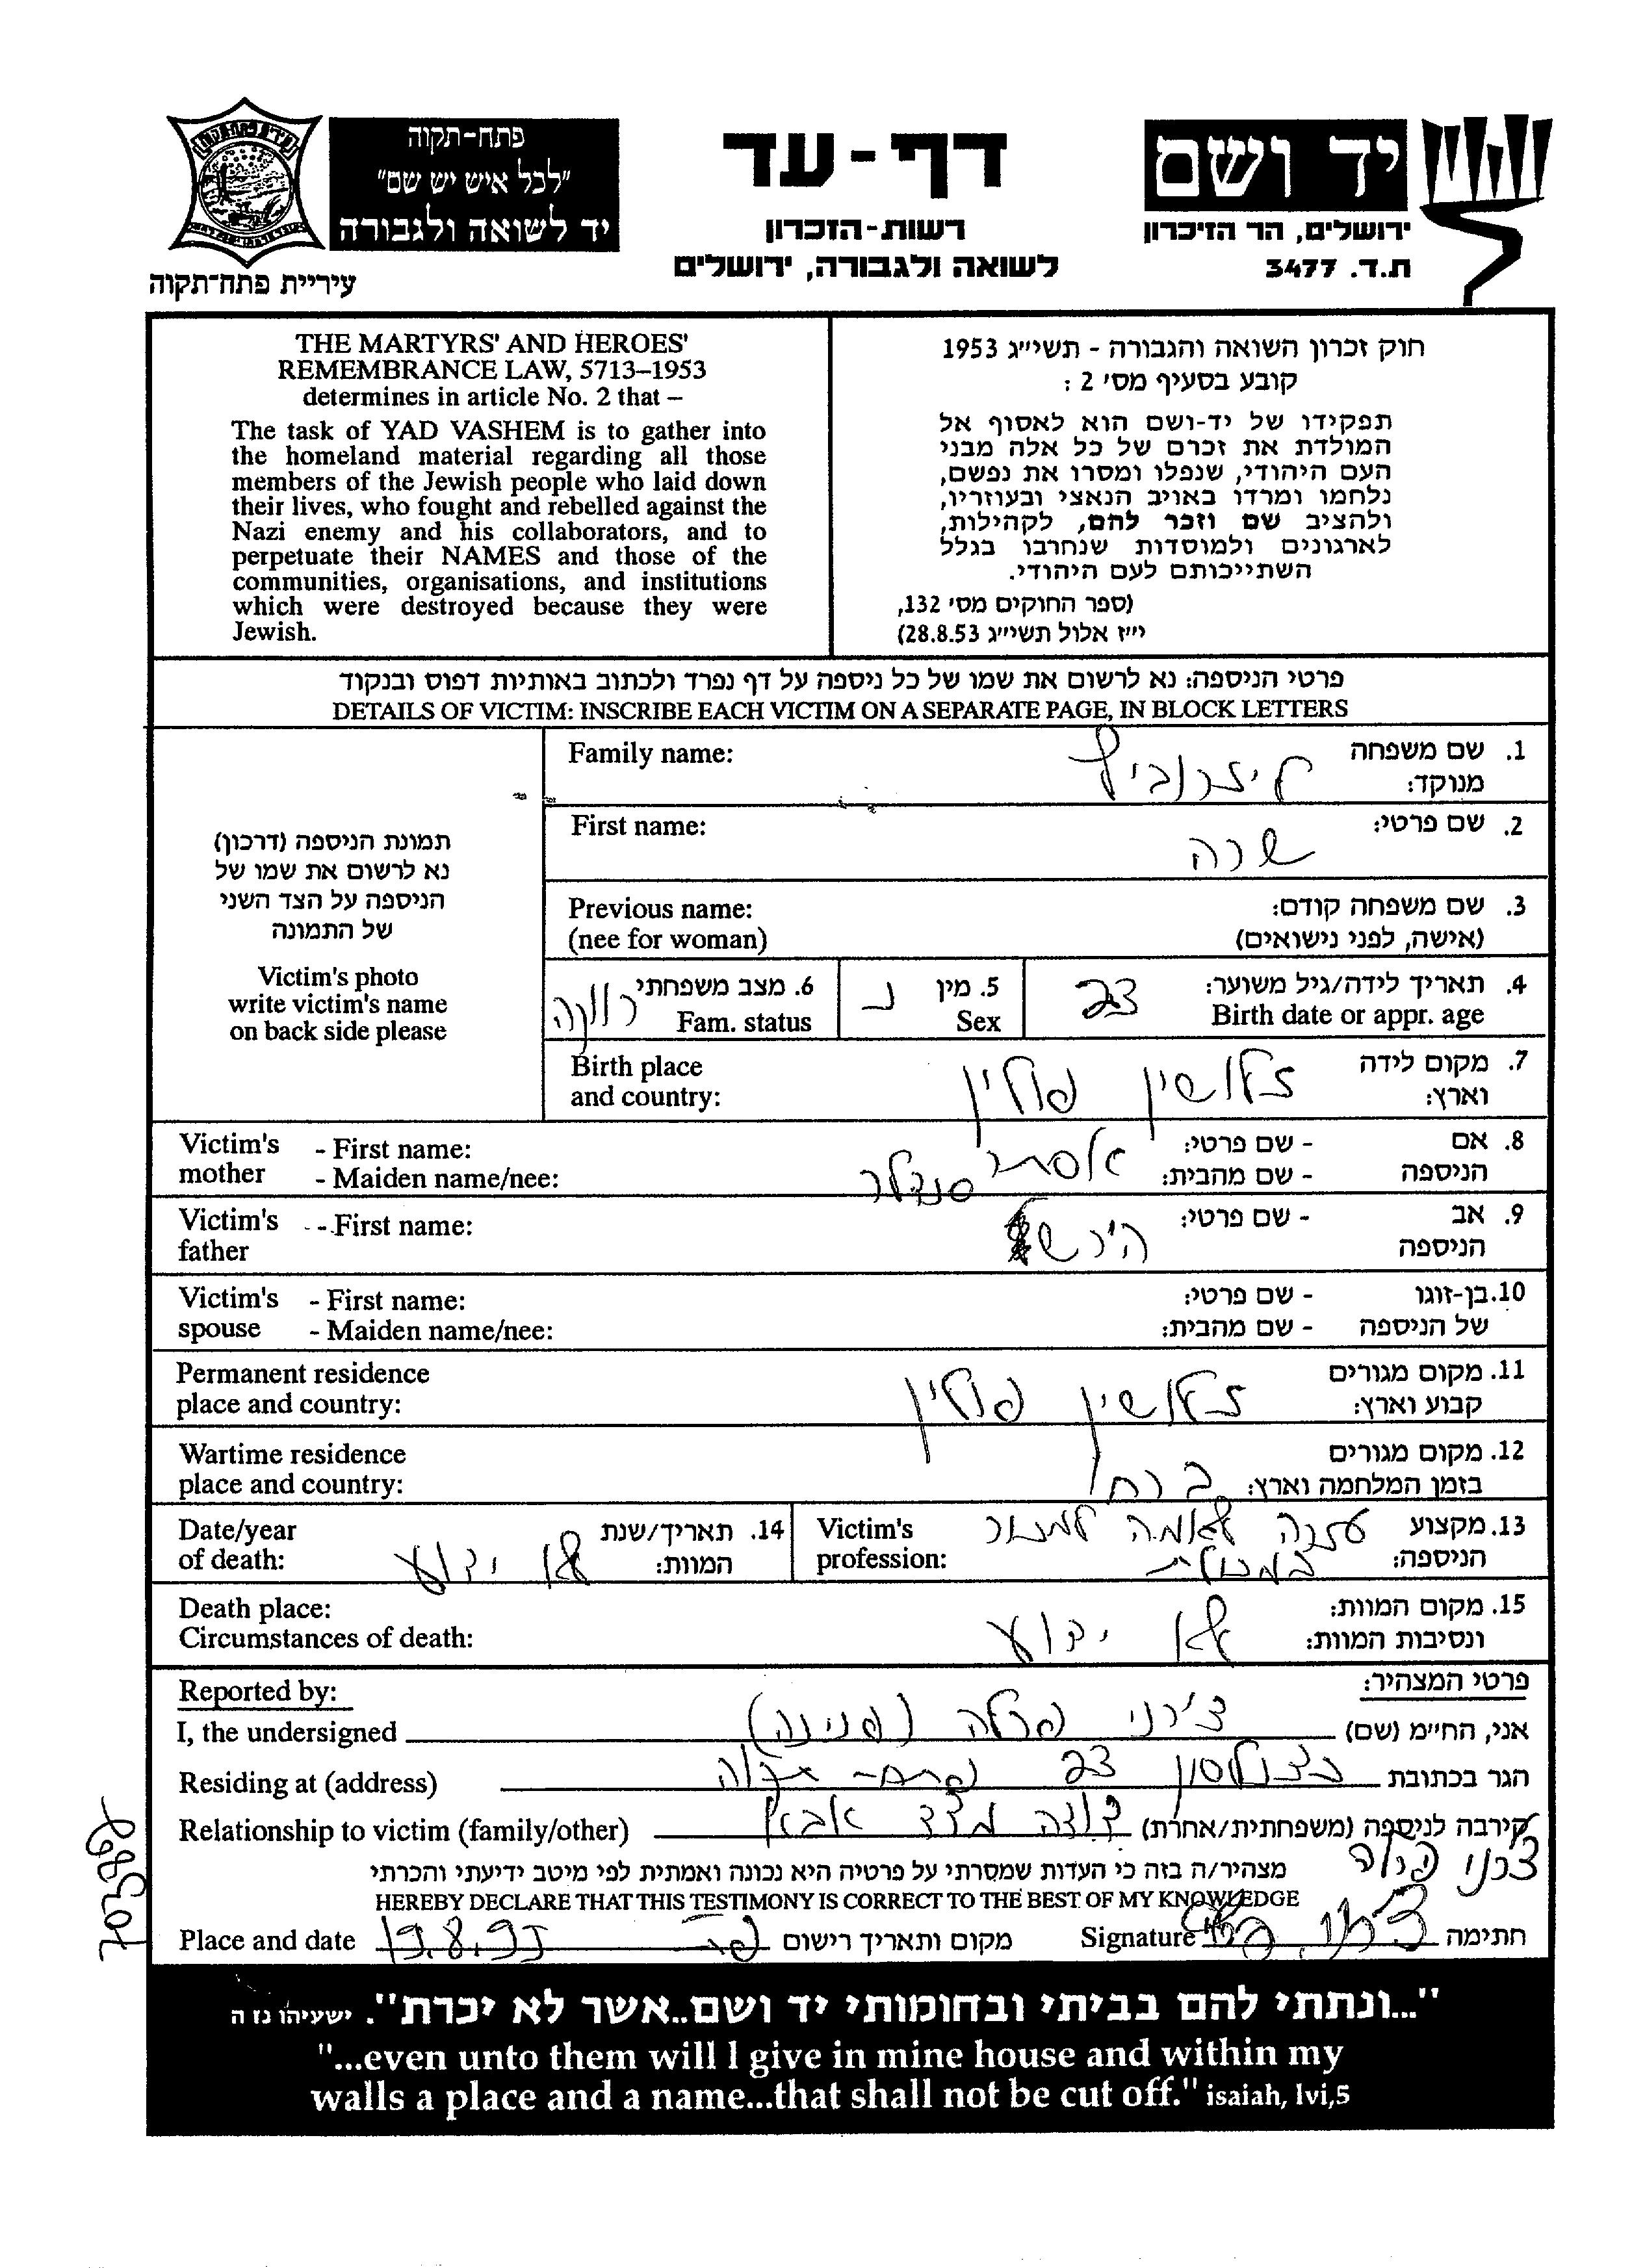 פתח-תקוה
"לכל איש יש שם"
יד לשואה ולגבורה
עיריית פתח-תקוה
דף-עד
רשות-הזכרון
לשואה ולגבורה, ירושלים
יד ושם
ירושלים, הר הזיכרון
ת.ד. 3477
THE MARTYRS' AND HEROES'
REMEMBRANCE LAW, 5713–1953
determines in article No. 2 that –
The task of YAD VASHEM is to gather into
the homeland material regarding all those
members of the Jewish people who laid down
their lives, who fought and rebelled against the
Nazi enemy and his collaborators, and to
perpetuate their NAMES and those of the
communities, organisations, and institutions
which were destroyed because they were
Jewish.
חוק זכרון השואה והגבורה - תשי״ג 1953
קובע בסעיף מס' 2 :
תפקידו של יד-ושם הוא לאסוף אל
המולדת את זכרם של כל אלה מבני
העם היהודי, שנפלו ומסרו את נפשם,
נלחמו ומרדו באויב הנאצי ובעוזריו,
ולהציב שם וזכר להם, לקהילות,
לארגונים ולמוסדות שנחרבו בגלל
השתייכותם לעם היהודי.
(ספר החוקים מס' 132,
י״ז אלול תשי״ג 28.8.53)
פרטי הניספה: נא לרשום את שמו של כל ניספה על דף נפרד ולכתוב באותיות דפוס ובנקוד
DETAILS OF VICTIM: INSCRIBE EACH VICTIM ON A SEPARATE PAGE, IN BLOCK LETTERS
תמונת הניספה (דרכון)
נא לרשום את שמו של
הניספה על הצד השני
של התמונה
Victim's photo
write victim's name
on back side please
1. שם משפחה
מנוקד: ליזרוביץ Family name:
2. שם פרטי: שרה First name:
3. שם משפחה קודם: Previous name:
(אישה, לפני נישואים) (nee for woman)
4. תאריך לידה/גיל משוער: 23
Birth date or appr. age
5. מין נ
Sex
6. מצב משפחתי רווקה
Fam. status
7. מקום לידה Birth place
וארץ: זלושין פולין and country:
8. אם - שם פרטי: אסתר Victim's - First name:
הניספה - שם מהבית: סנדלר mother - Maiden name/nee:
9. אב - שם פרטי: הירש Victim's - First name:
הניספה father
10. בן-זוגו - שם פרטי: Victim's - First name:
של הניספה - שם מהבית: spouse - Maiden name/nee:
11. מקום מגורים Permanent residence
קבוע וארץ: זלושין פולין place and country:
12. מקום מגורים Wartime residence
בזמן המלחמה וארץ: place and country:
13. מקצוע עזרה לאמה Victim's
הניספה: במכולת profession:
14. תאריך/שנת Date/year
המוות: לא ידוע of death:
15. מקום המוות: Death place:
ונסיבות המוות: לא ידוע Circumstances of death:
פרטי המצהיר: Reported by:
אני, החי״מ (שם) צ'רני פרלה (פנינה) I, the undersigned
הגר בכתובת כצנלסון 23 פתח-תקוה Residing at (address)
קירבה לניספה (משפחתית/אחרת) דודה מצד אבא Relationship to victim (family/other)
מצהיר/ה בזה כי העדות שמסרתי על פרטיה היא נכונה ואמתית לפי מיטב ידיעתי והכרתי
HEREBY DECLARE THAT THIS TESTIMONY IS CORRECT TO THE BEST OF MY KNOWLEDGE
חתימה Signature מקום ותאריך רישום Place and date
"...ונתתי להם בביתי ובחומותי יד ושם..אשר לא יכרת". ישעיהו נז ה
"...even unto them will I give in mine house and within my
walls a place and a name...that shall not be cut off." isaiah, lvi,5